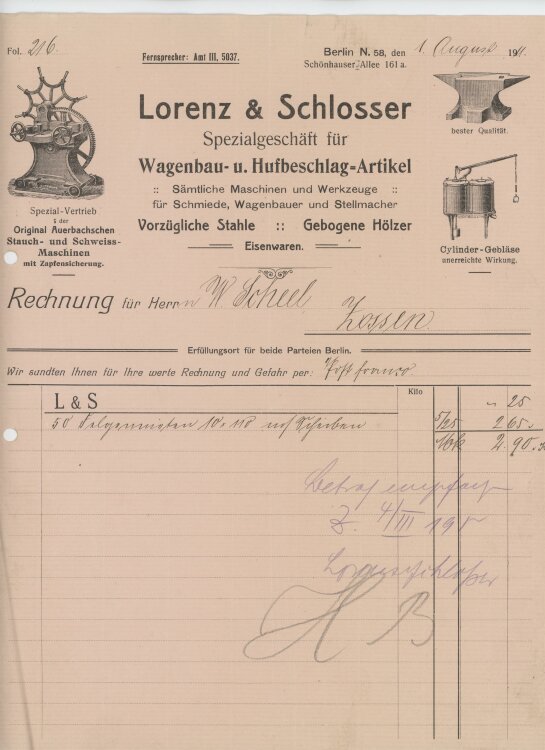 Fol. 216.
Fernsprecher: Amt III, 5037.
Berlin N. 58, den 1. August 1911.
Schönhauser-Allee 161 a.
Lorenz & Schlosser
Spezialgeschäft für
Wagenbau- u. Hufbeschlag-Artikel
:: Sämtliche Maschinen und Werkzeuge ::
für Schmiede, Wagenbauer und Stellmacher
Vorzügliche Stahle :: Gebogene Hölzer
Eisenwaren.
Spezial-Vertrieb
der
Original Auerbachschen
Stauch- und Schweiss-
Maschinen
mit Zapfensicherung.
bester Qualität.
Cylinder-Gebläse
unerreichte Wirkung.
Rechnung für Herrn W. Scheel
Zossen
Erfüllungsort für beide Parteien Berlin.
Wir sandten Ihnen für Ihre werte Rechnung und Gefahr per: Post franco
Kilo
L & S
25
50 Felgennieten 10 × 110 mit Scheiben 5/25 2 65.
Mk 2.90.
Betrag empfangen
4/III 19
Lorenz & Schlosser
H B